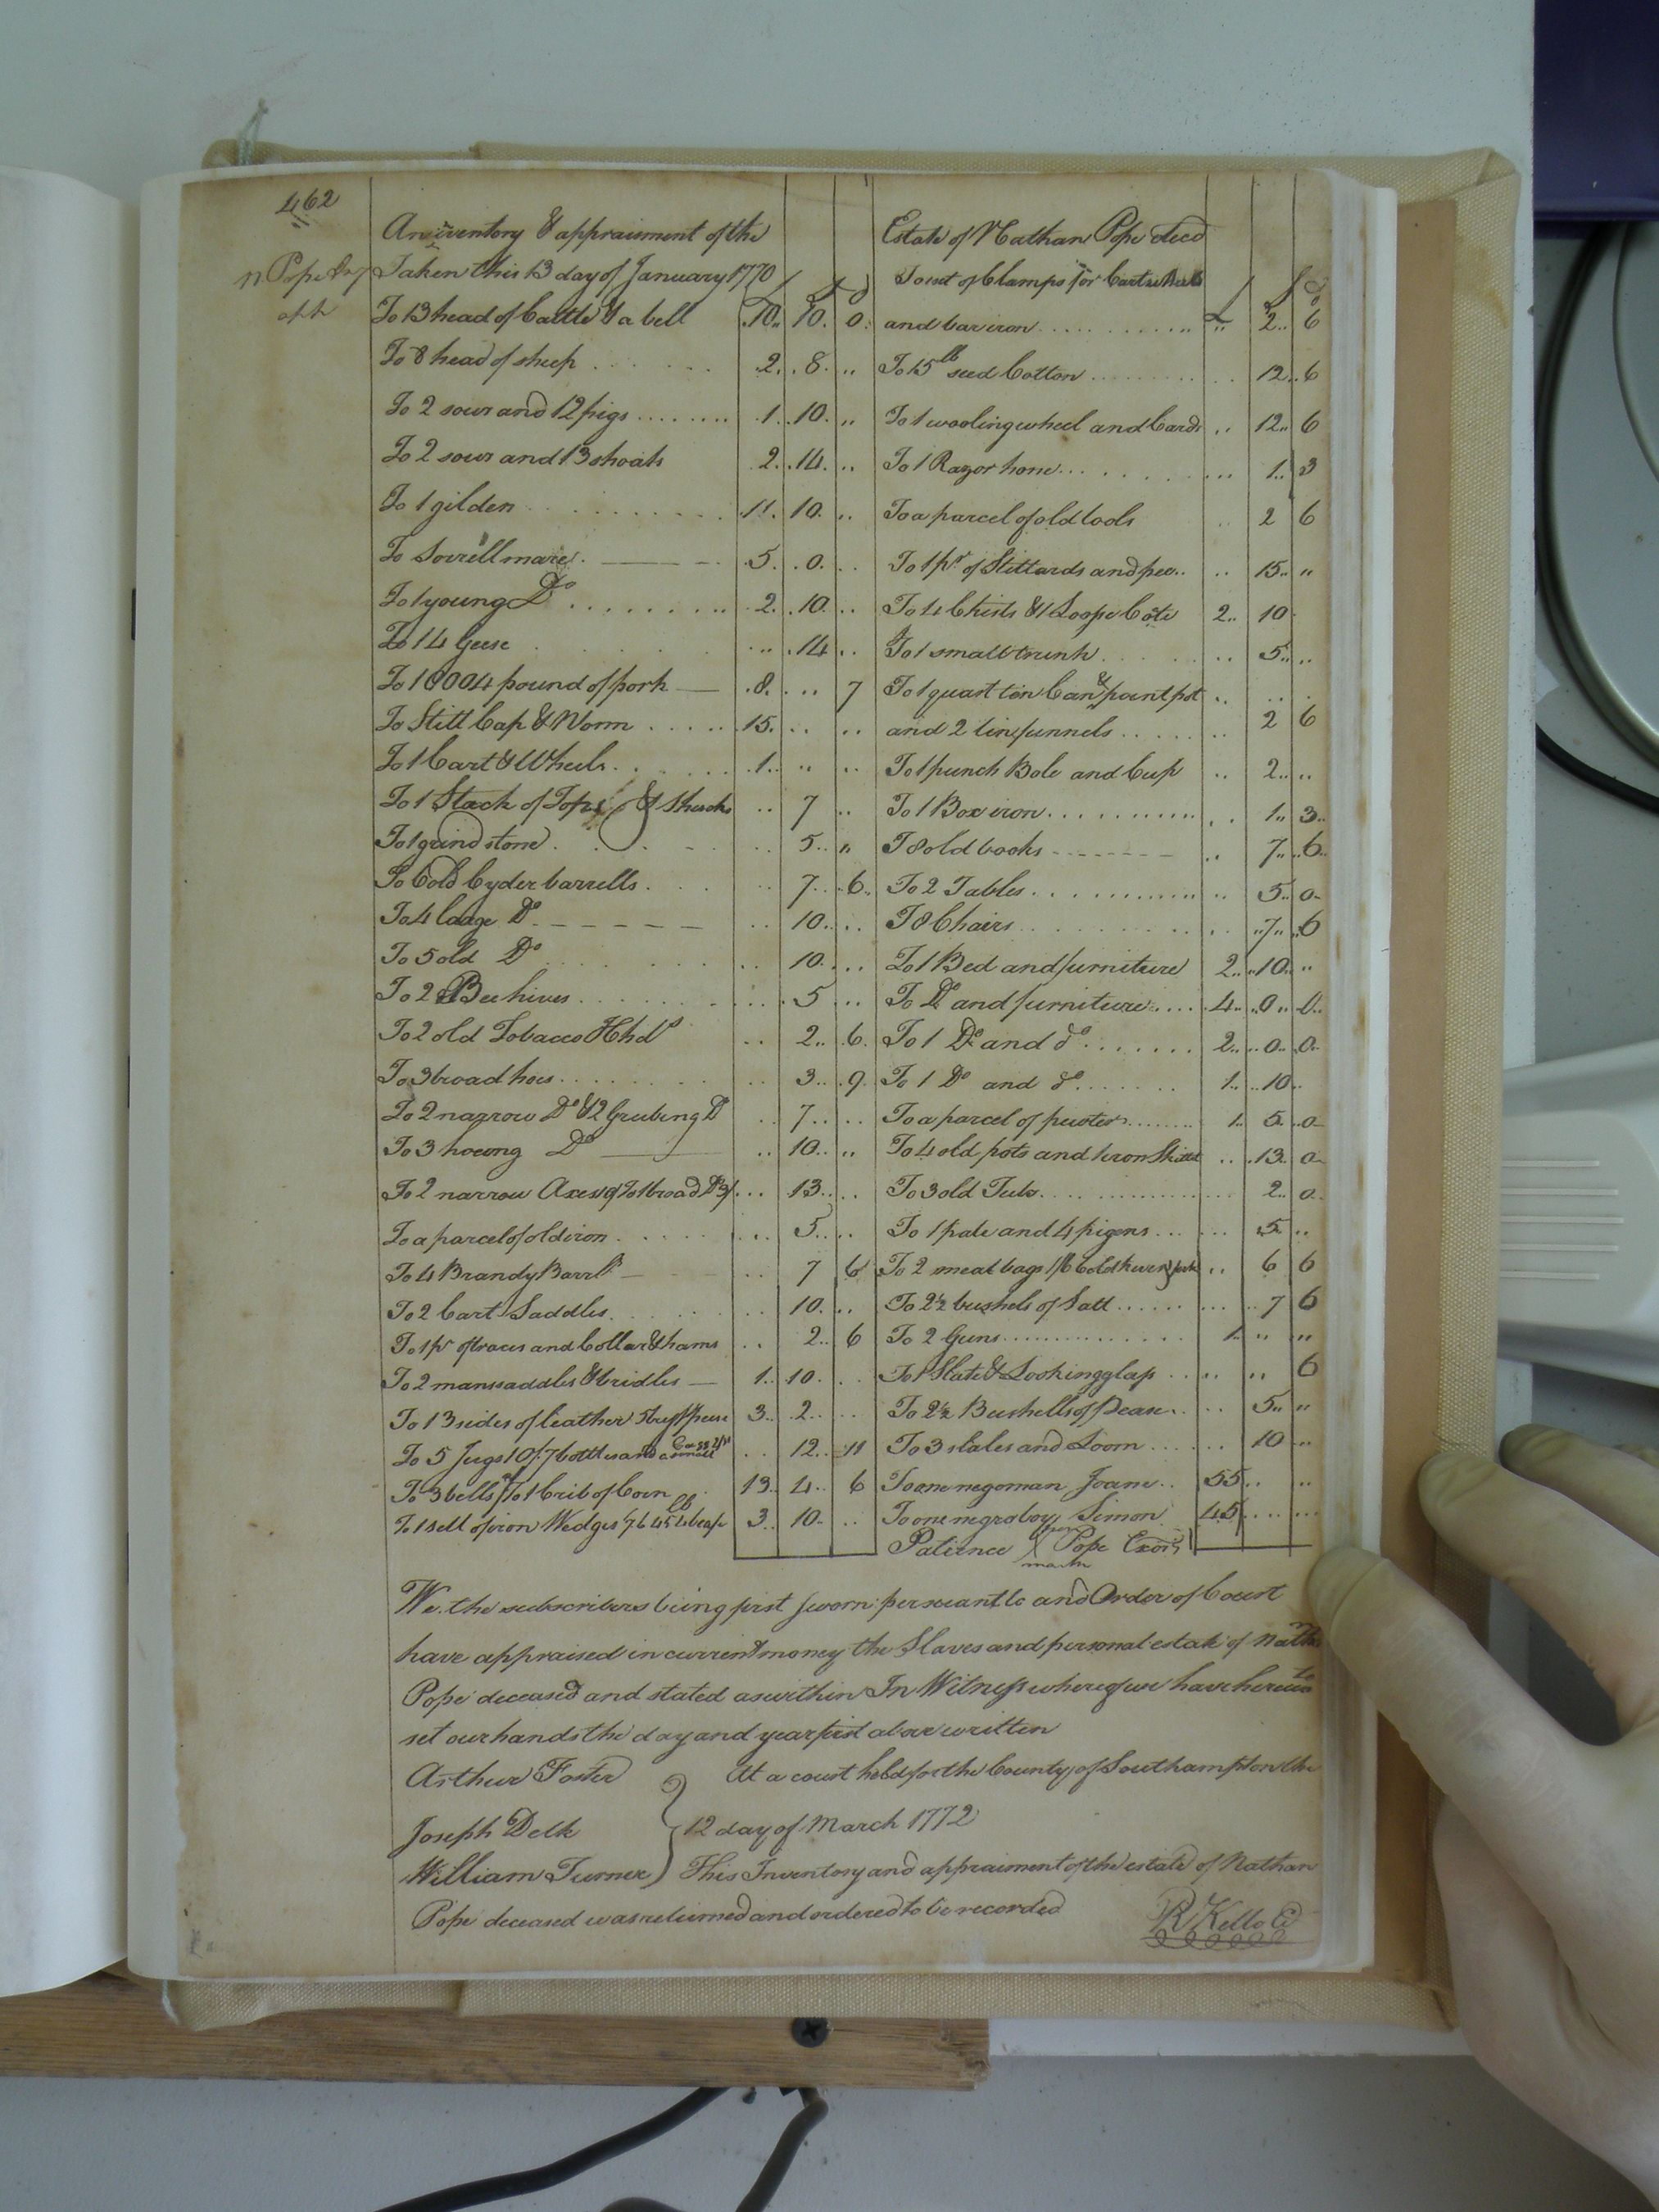 462
An inventory & appraisment of the
n Pope Inv
Taken this 13 day of January 1770
£ S d
To 13 head of Cattle & a bell 10 10 0
To 8 head of sheep 2 8 "
To 2 sows and 12 pigs 1 10 "
To 2 sows and 13 shoats 2 14 "
To 1 gilden 11 10 "
To Sorrell mare 5 0
To 1 young Do 2 10
To 14 Geese 14
pound of pork 8 " 7
To Still Cap & Worm 15 " "
To 1 Cart & Wheels 1 " "
To 1 Stack of Tops & Shucks 7 "
To 1 grind stone 5 "
To 6 old Cyder barrells 7 6
To 4 large Do 10
To 5 old Do 10
To 2 Bee hives 5
To 2 old Tobacco Hhds 2 6
To 3 broad hoes 3 9
To 2 narrow Do & 2 Grubing Do 7
To 3 hoeing Do 10 "
To 2 narrow Axes To 1 broad Do 13
To a parcel of old iron 5
To 4 Brandy Barrls 7 6
To 2 Cart Saddles 10
To 1 pr of traces and Collar & hams 2 6
To 2 mans saddles & bridles 1 10
To 13 sides of leather 3 2
To 5 Jugs 10/ 7 bottles and 12 11
To 3 bells To 1 Crib of Corn 13 4 6
To 1 sett of iron Wedges 7/6 3 10
Estate of Nathan Pope decd
To set of Clamps for Cart wheels
£ S d
and bar iron " 2 6
To 15 lb seed Cotton 12 6
To 1 wooling wheel and Cards 12 6
To 1 Razor hone 1 3
To a parcel of old tools 2 6
To 1 pr of Stittards and pee 15 "
To 4 Chists & 1 2 10
To 1 small trunk 5 "
To 1 quart tin Can & point pot
and 2 tin funnels 2 6
To 1 punch Bole and Cup 2 "
To 1 Box iron 1 3
To 8 old books 7 6
To 2 Tables 5 0
To 8 Chairs 7 6
To 1 Bed and furniture 2 10 "
To Do and furniture 4 0 0
To 1 Do and do 2 0 0
To 1 Do and do 1 10
To a parcel of pewter 1 5 0
To 4 old pots and 1 iron Skillet 13 0
To 3 old Tubs 2 0
To 1 pale and 4 pigens 5 "
To 2 meal bags 6 6
To 2½ bushels of Salt 7 6
To 2 Guns 1 " "
To 1 Slate & Looking glass " 6
To 2½ Bushells of Pease 5 "
To 3 slales and Loom 10 "
To one negoman Joane 55 "
To one negro boy Simon 45
Patience X Pope Exors
mark
We the subscribers being first sworn persuant to and Order of Court
have appraised in current money the Slaves and personal estate of Nathn
Pope deceased and stated as within In Witness whereof we have hereunto
set our hands the day and year first above written
Arthur Foster
Joseph Delk
William Turner
At a court held for the County of Southampton the
12 day of March 1772
This Inventory and appraisment of the estate of Nathan
Pope deceased was returned and ordered to be recorded
R Kello